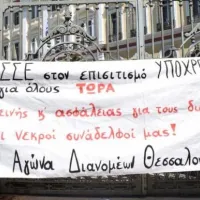 ΣΣΕ στον επισιτισμό ΥΠΟΧΡ
για όλους ΤΩΡΑ
ς κ' ασφάλειας για τους
νεκροί συνάδελφοί μας!
Αγώνα Διανομέων Θεσσαλο